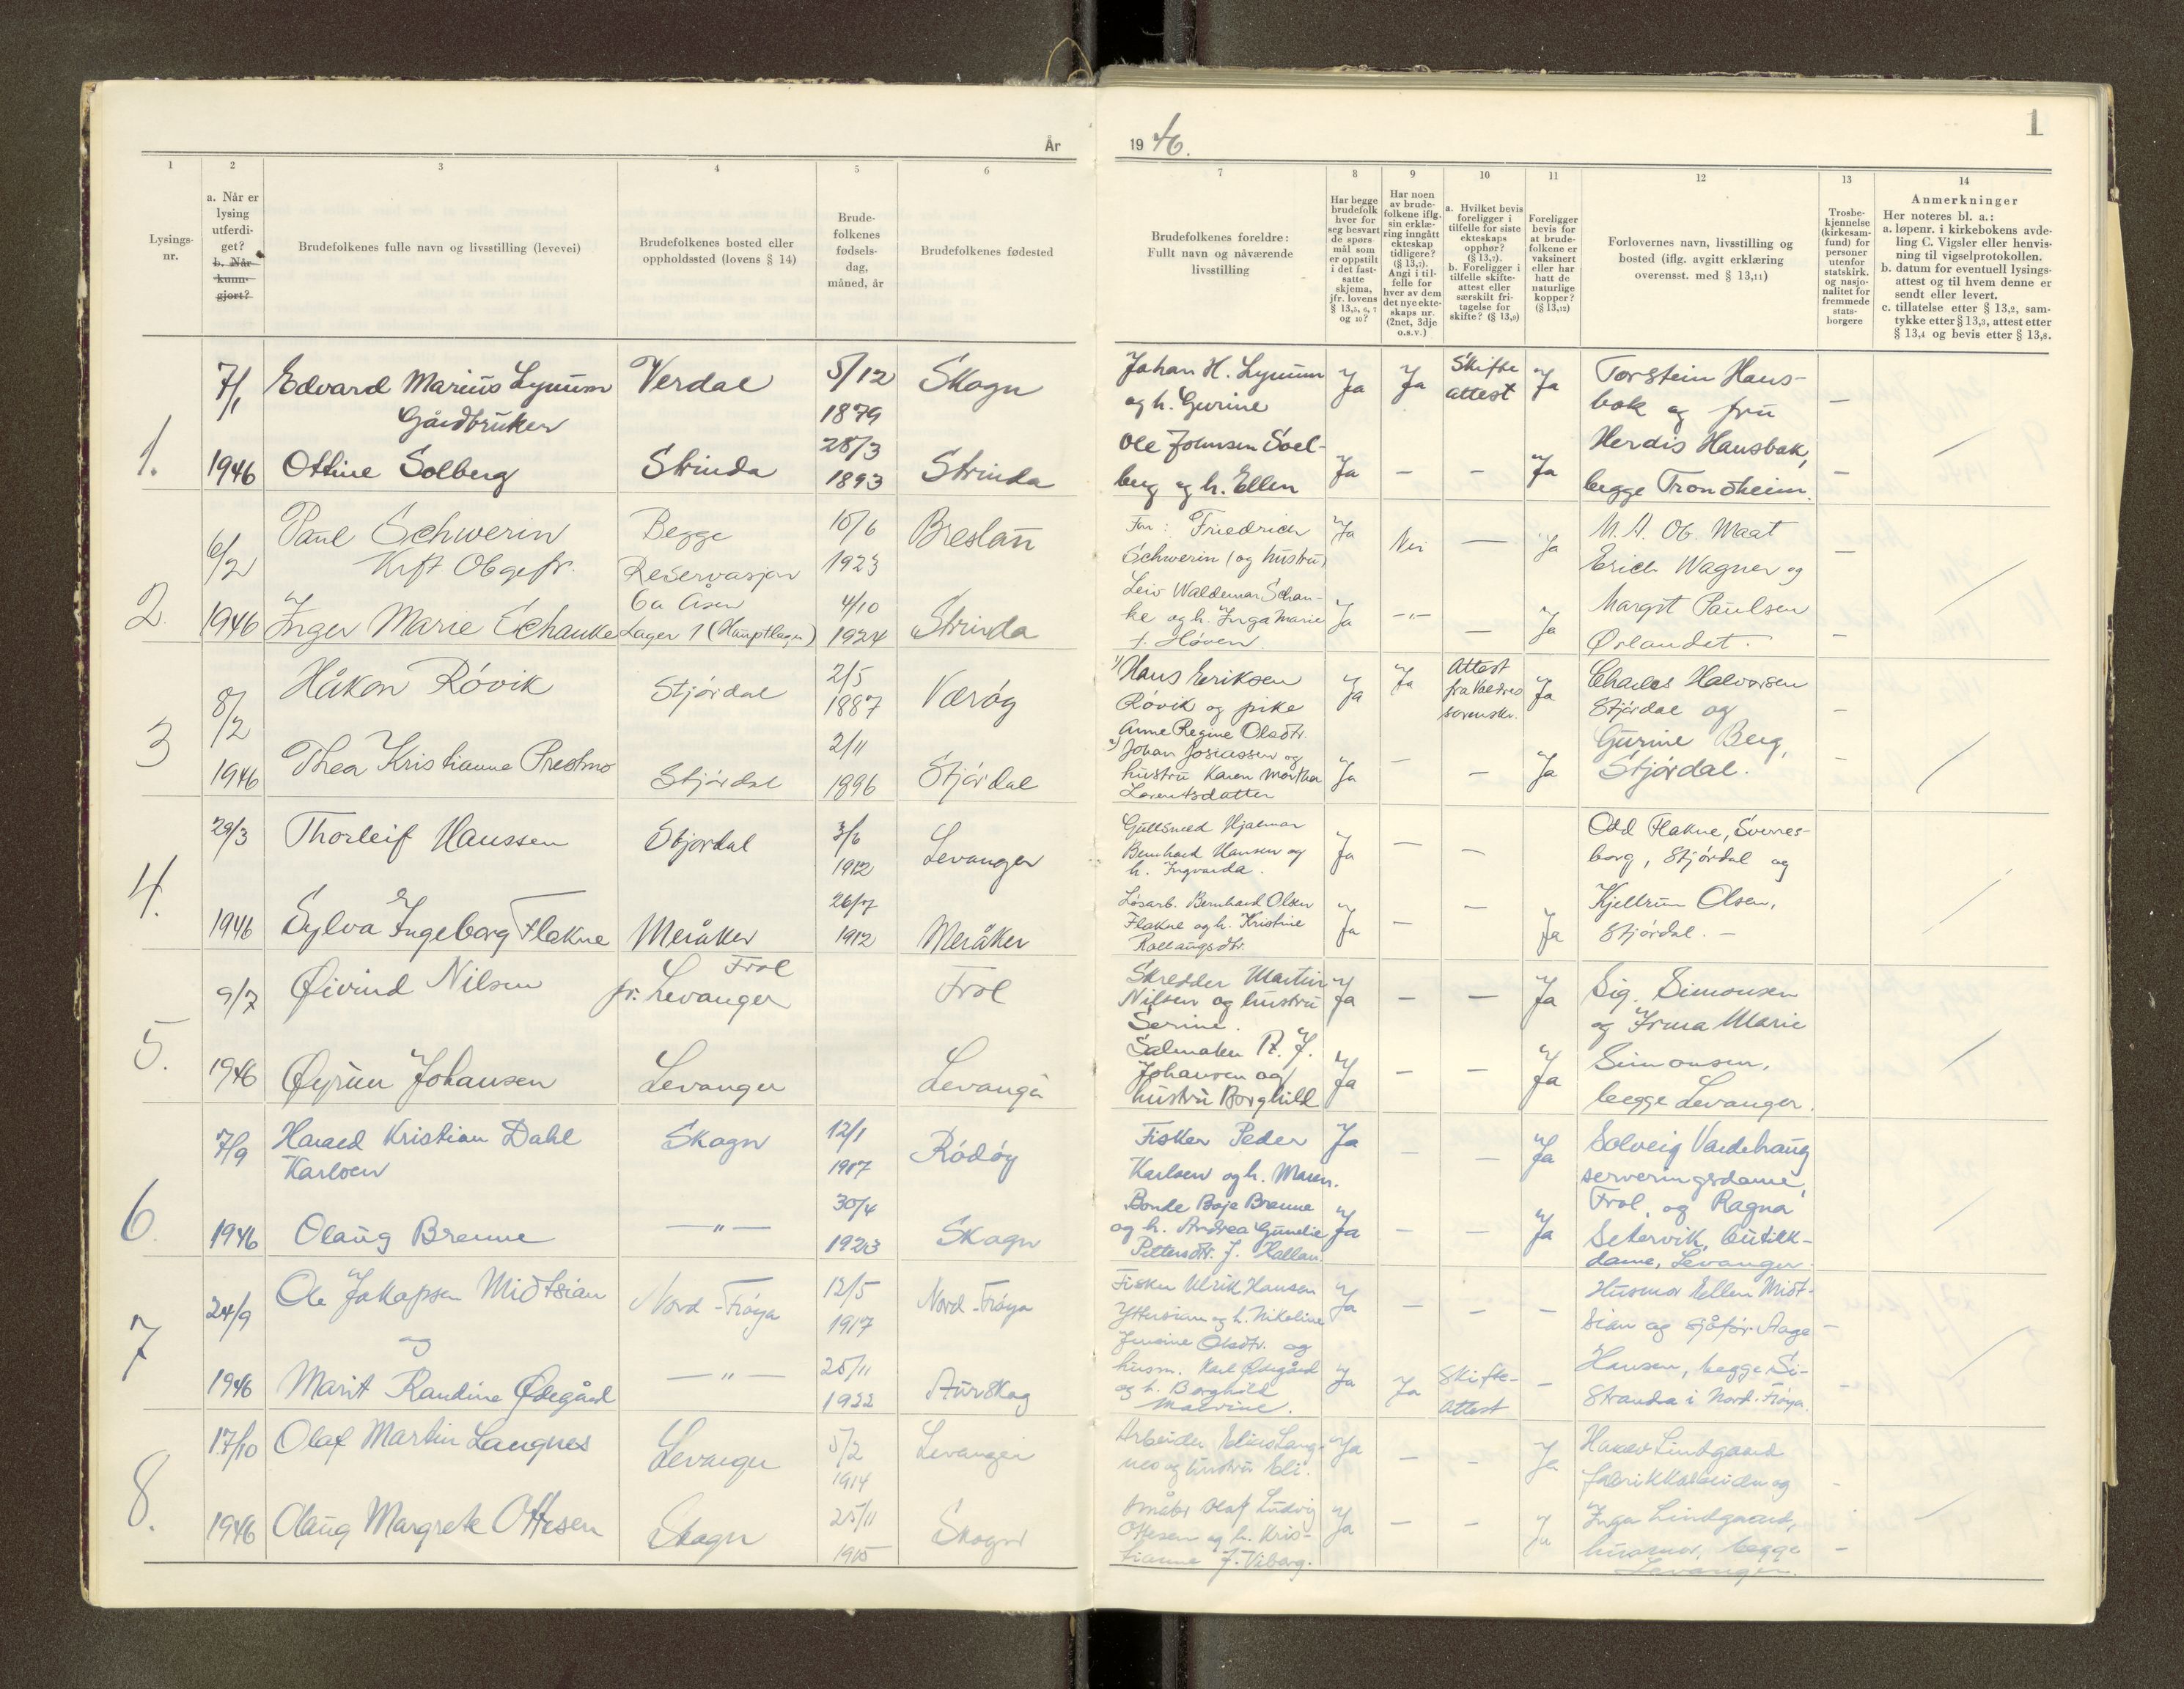 År
1946.
1
1
2
3
4
5
6
7
8
9
10
11
12
13
14
Lysings-
nr.
a. Når er
lysing
utferdi-
get?
b. Når
kunn-
gjort?
Brudefolkenes fulle navn og livsstilling (levevei)
Brudefolkenes bosted eller
oppholdssted (lovens § 14)
Brude-
folkenes
fødsels-
dag,
måned, år
Brudefolkenes fødested
Brudefolkenes foreldre:
Fullt navn og nåværende
livsstilling
Har begge
brudefolk
hver for
seg besvart
de spørs-
mål som
er oppstilt
i det fast-
satte
skjema,
jfr. lovens
§ 13,5, 6, 7
og 10?
Har noen
av brude-
folkene iflg.
sin erklæ-
ring inngått
ekteskap
tidligere?
(§ 13,7).
Angi i til-
felle for
hver av dem
det nye ekte-
skaps nr.
(2net, 3dje
o.s.v.)
a. Hvilket bevis
foreligger i
tilfelle for siste
ekteskaps
opphør?
(§ 13,7).
b. Foreligger i
tilfelle skifte-
attest eller
særskilt fri-
tagelse for
skifte? (§ 13,9)
Foreligger
bevis for
at brude-
folkene er
vaksinert
eller har
hatt de
naturlige
kopper?
(§ 13,12)
Forlovernes navn, livsstilling og
bosted (iflg. avgitt erklæring
overensst. med § 13,11)
Trosbe-
kjennelse
(kirkesam-
fund) for
personer
utenfor
statskirk.
og nasjo-
nalitet for
fremmede
stats-
borgere
Anmerkninger
Her noteres bl. a.:
a. løpenr. i kirkebokens avde-
ling C. Vigsler eller henvis-
ning til vigselprotokollen.
b. datum for eventuell lysings-
attest og til hvem denne er
sendt eller levert.
c. tillatelse etter § 13,2, sam-
tykke etter § 13,3, attest etter
§ 13,4 og bevis etter § 13,8.
1.
7/1
1946
Edvard Marius Lynum
Gårdbruker
Verdal
5/12
1879
Skogn
Johan H. Lynum
og h. Gurine
Ja
Ja
Skifte
attest
Ja
Torstein Haus-
bak og fru
—
Ottine Solberg
Strinda
28/3
1893
Strinda
Ole Johnsen Soel-
berg og h. Ellen
Ja
—
—
Ja
Herdis Hausbak,
begge Trondheim.
—
2
6/2
1946
Paul Schwerin
Krft Obgefr.
Begge
Reservasjon
6a Åsen
Lager 1 (Hauptlager)
10/6
1923
Breslau
Friedrich
Schwerin (og hustru)
Ja
Nei
—
Ja
M. A. Ob. Maat
Erich Wagner og
—
Inger Marie Schanke
4/10
1924
Strinda
Leiv Waldemar Schan-
ke og h. Inga Marie
f. Høven
Ja
—"—
—
Ja
Margit Paulsen
Ørlandet.
—
3
8/2
1946
Håkon Røvik
Stjørdal
2/5
1887
Værøy
1) Hans Eriksen
Røvik og pike
Anne Regine Olsdtr.
Ja
Ja
Attest
fra Valdres
sorenskr.
Ja
Charles Halvorsen
Stjørdal og
—
Thea Kristianne Prestmo
Stjørdal
2/11
1896
Stjørdal
2) Johan Josiassen og
hustru Karen Martha
Lorentsdatter
Ja
—
—
Ja
Gurine Berg,
Stjørdal.
—
4.
29/3
1946
Thorleif Hanssen
Stjørdal
3/6
1912
Levanger
Gullsmed Hjalmar
Bernhard Hansen og
h. Ingvarda.
Ja
—
—
Odd Flakne, Sverres-
borg, Stjørdal og
Sylva Ingeborg Flakne
Meråker
26/7
1912
Meråker
Løsarb. Bernhard Olsen
Flakne og h. Kristine
Ja
—
—
Ja
Kjellrun Olsen,
Stjørdal. —
5.
9/7
1946
Øivind Nilsen
Frol
pr. Levanger
Frol
Skredder Martin
Nilsen og hustru
Serine.
Ja
—
—
Ja
Sig. Simonsen
og Irma Marie
Øyrun Johansen
Levanger
Levanger
Salmaker R. J.
Johansen og
hustru Borghild
Ja
—
—
Ja
Simonsen,
begge Levanger.
6.
7/9
1946
Harald Kristian Dahl
Karlsen
Skogn
12/1
1917
Rødøy
Fisker Peder
Karlsen og h. Maren.
Ja
—
—
Ja
Solveig Vardehaug
serveringsdame,
Olaug Brenne
— " —
30/4
1923
Skogn
Bonde Boje Brenne
og h. Andrea Gunelie
Pettersdtr. f. Hallan.
Ja
—
—
Ja
Frol, og Ragna
Setervik, butikk-
dame, Levanger.
7
24/9
1946
Ole Jakopsen Midtsian
og
Nord-Frøya
12/5
1917
Nord-Frøya
Fisker Ulrik Hansen
Yttersian og h. Nikoline
Jensine Olsdtr. og
Ja
—
—
—
Husmor Ellen Midt-
sian og sjåfør Aage
—
Marit Randine Ødegård
— " —
25/11
1922
Aurskog
husm. Karl Ødegård
og h. Borghild
Malvine.
Ja
Ja
Skifte-
attest
—
Hansen, begge Si-
stranda i Nord-Frøya.
—
8.
17/10
1946
Olaf Martin Langnes
Levanger
5/2
1914
Levanger
Arbeider Elias Lang-
nes og hustru Eli.
Ja
—
—
Ja
Lindgaard
fabrikkarbeider og
—
Olaug Margrete Ottesen
Skogn
25/11
1915
Skogn
Småbr. Olaf Ludvig
Ottesen og h. Kris-
tianne f. Viborg.
Ja
—
—
Ja
Inga Lindgaard,
husmor, begge
Levanger.
—